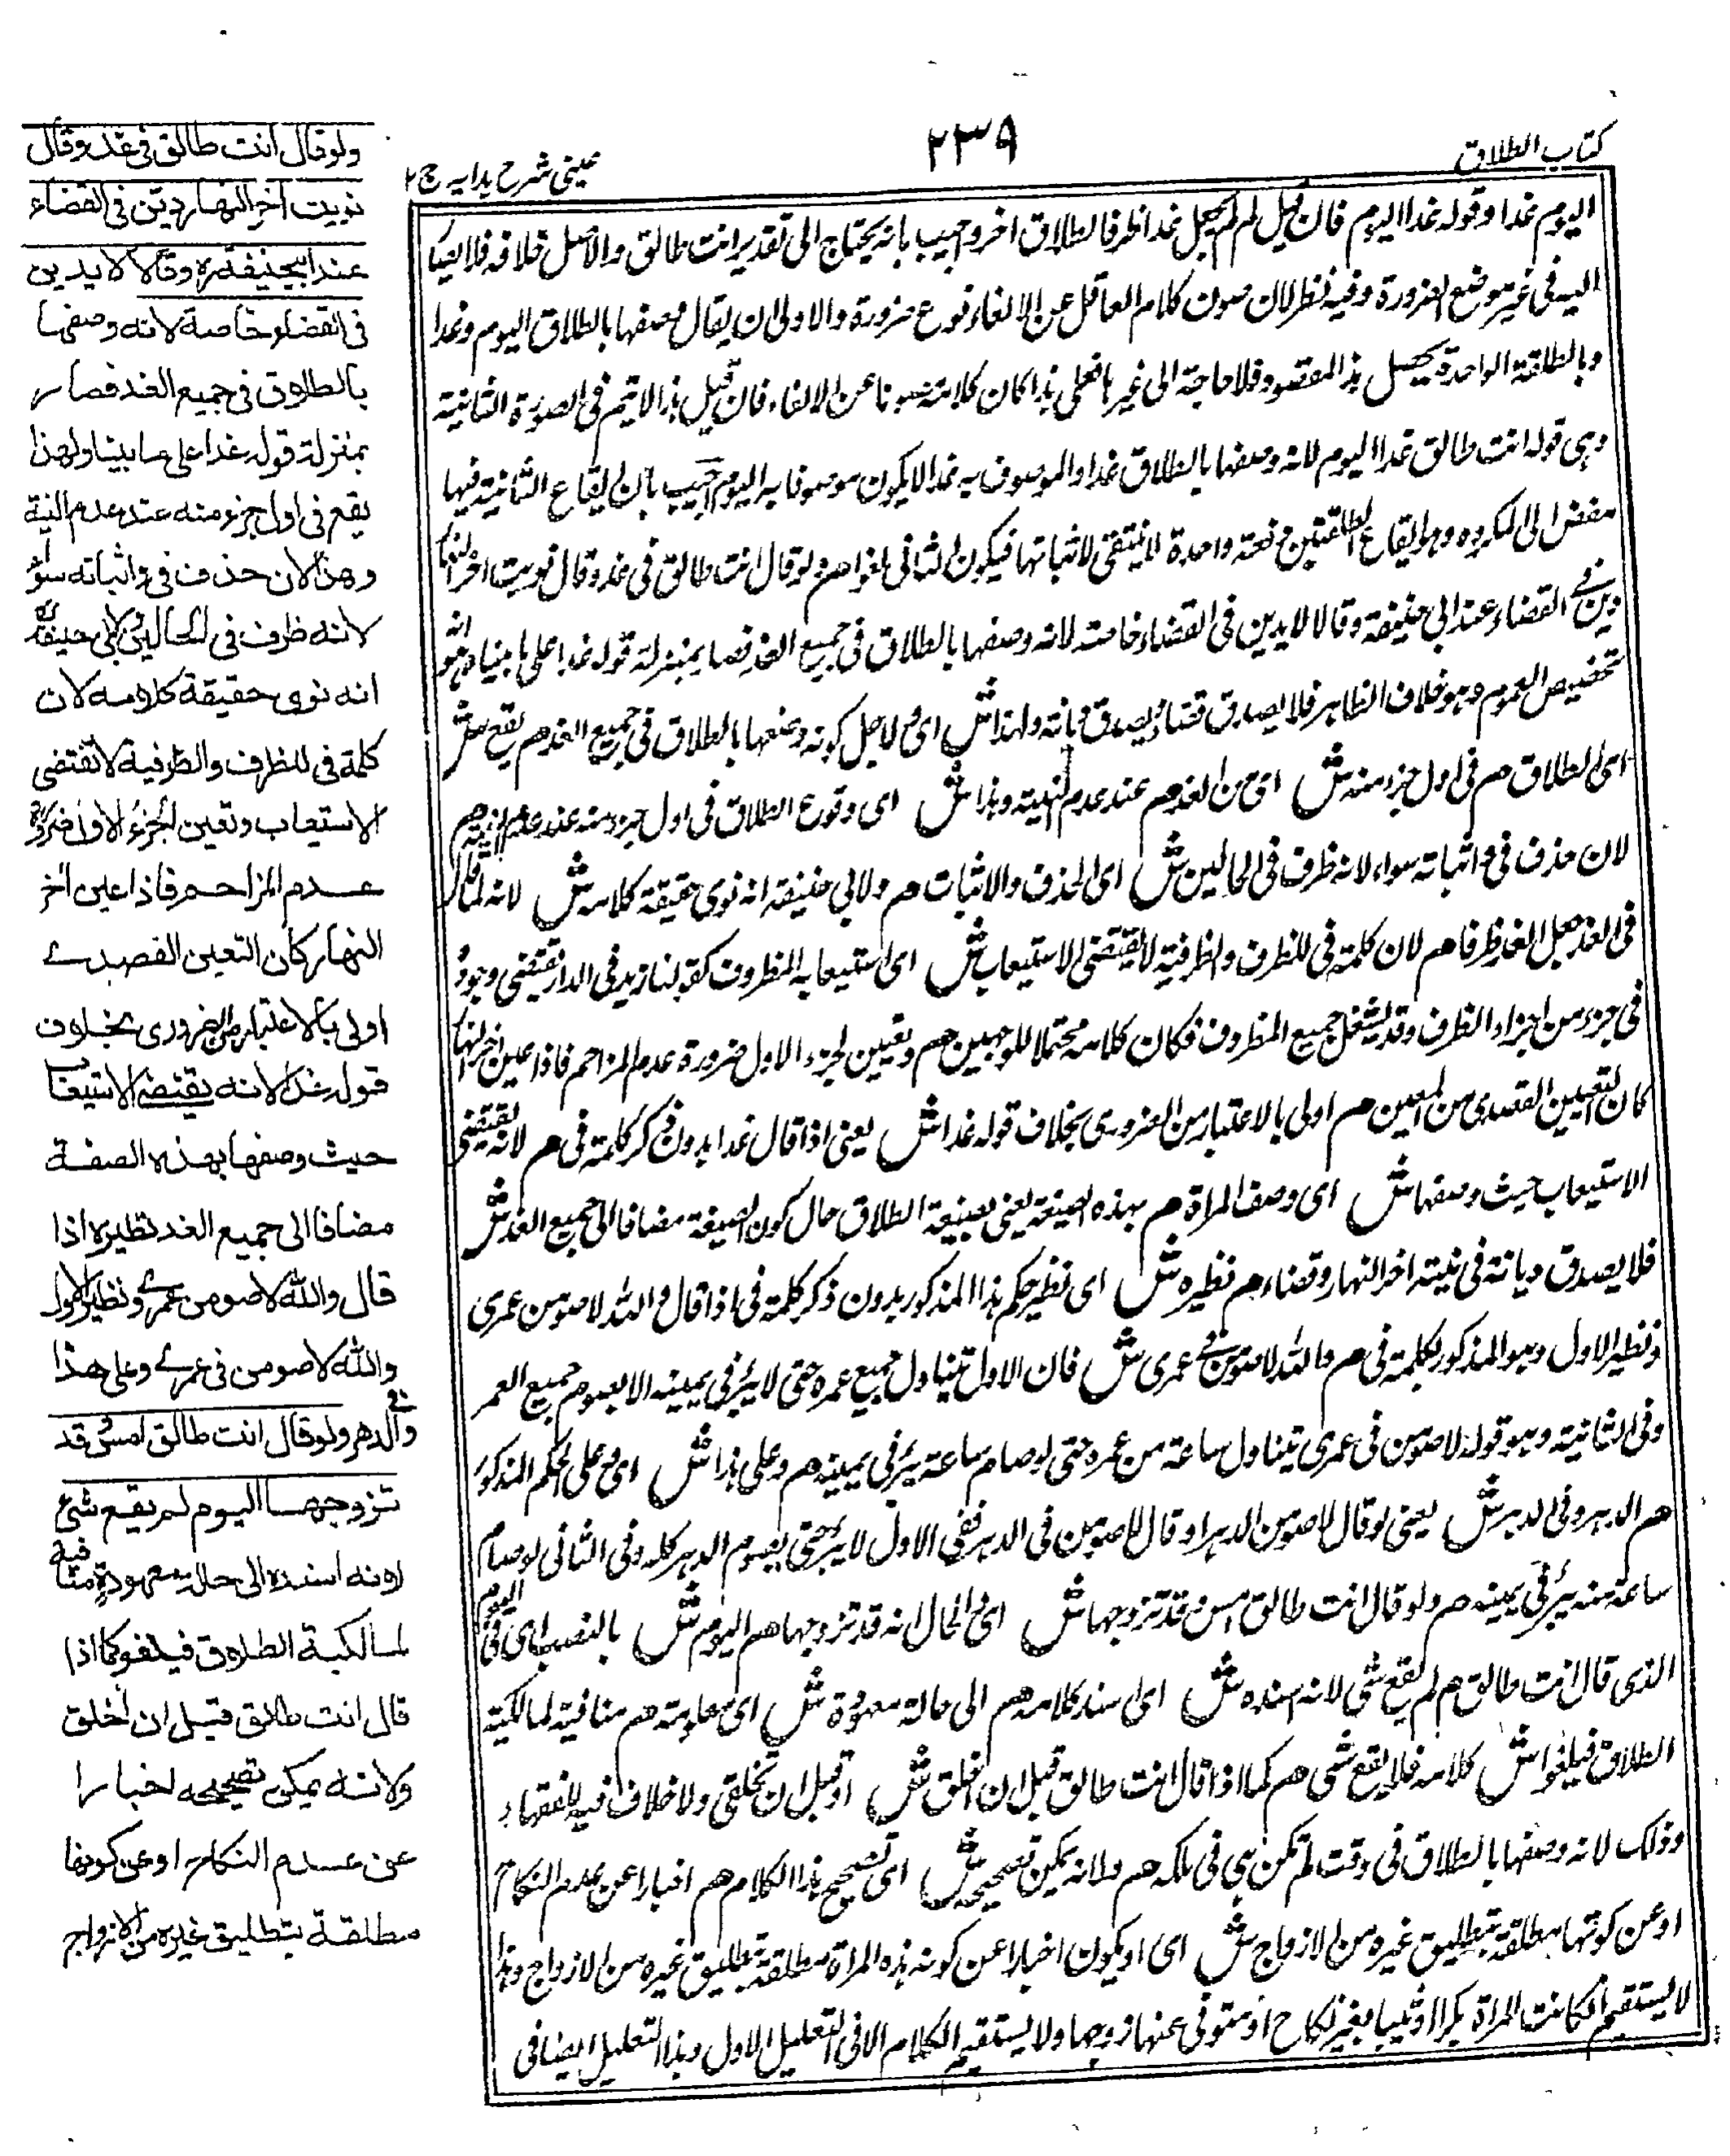 كتاب الطلاق
٢٣٩
عينى شرح هدايه ج٢
اليوم غدا وقوله غدا اليوم فان قيل لم لم يجعل غدا ظرفا لطلاق اخر واجيب بانه يحتاج الى تقدير انت طالق والاصل خلافه فلا يصار
اليه فى غير موضع الضرورة وفيه نظر لان صون كلام العاقل عن الالغاء نوع ضرورة والاولى ان يقال وصفها بالطلاق اليوم وغدا
وبالطلقة الواحدة يحصل هذا المقصود فلا حاجة الى غيرها فعلى هذا كان كلامه صونا عن الالغاء فان قيل هذا لا يتم فى الصورة الثانية
وهى قوله انت طالق غدا اليوم لانه وصفها بالطلاق غدا والموصوف به غدا لا يكون موصوفا به اليوم اجيب بان ايقاع الثانية فيها
مفض الى المكروه وهو ايقاع الطلقتين دفعة واحدة لا ينتفى لاثباتها فيكون الثانى لغوا هم ولو قال انت طالق فى غد وقال نويت اخر النهار
دين فى القضاء عند ابى حنيفة وقالا لا يدين فى القضاء خاصة لانه وصفها بالطلاق فى جميع الغد فصار بمنزلة قوله غدا على ما بينا انه
تخصيص العموم وهو خلاف الظاهر فلا يصدق قضاء ويصدق ديانة ولهذا ش اى ولاجل كونه وصفها بالطلاق فى جميع الغد هم يقع ش
اى الطلاق هم فى اول جزء منه ش اى من الغد هم عند عدم النية وهذا ش اى وقوع الطلاق فى اول جزء منه عند عدم النية هم
لان حذف فى واثباته سواء لانه ظرف فى الحالين ش اى الحذف والاثبات هم ولابى حنيفة انه نوى حقيقة كلامه ش لانه لما ذكر
فى الغد جعل الغد ظرفا هم لان كلمة فى للظرف والظرفية لا يقتضى الاستيعاب ش اى استيعابه المظروف كقولنا زيد فى الدار يقتضى وجوده
فى جزء من اجزاء الظرف وقد يشغل جميع المظروف فكان كلامه محتملا للوجهين هم وتعيين الجزء الاول ضرورة عدم المزاحم فاذا عين اخر النهار
كان التعيين القصدى من المعين هم اولى بالاعتبار من الضرورى بخلاف قوله غدا ش يعنى اذا قال غدا بدون ذكر كلمة فى هم لانه يقتضى
الاستيعاب حيث وصفها ش اى وصف المراة هم بهذه الصيغة يعنى بصيغة الطلاق حال كون الصيغة مضافا الى جميع الغد ش
فلا يصدق ديانة فى نيته اخر النهار وقضاء هم نظيره ش اى نظير حكم هذا المذكور بدون ذكر كلمة فى اذا قال والله لاصومن عمرى
ونظير الاول وهو المذكور بكلمة فى هم والله لاصومن فى عمرى ش فان الاول يتناول جميع عمره حتى لا يبر فى يمينه الا بصوم جميع العمر
وفى الثانية وهو قوله لاصومن فى عمرى يتناول ساعة من عمره حتى لو صام ساعة يبر فى يمينه هم وعلى هذا ش اى وعلى الحكم المذكور
هم الدهر وفى الدهر ش يعنى لو قال لاصومن الدهر او قال لاصومن فى الدهر ففى الاول لا يبر حتى يصوم الدهر كله وفى الثانى لو صام
ساعة منه يبر فى يمينه هم ولو قال انت طالق امس وقد تزوجها ش اى والحال انه قد تزوجها هم اليوم ش بالنصب اى فى اليوم
الذى قال انت طالق هم لم يقع شئ لانه اسنده ش اى اسند كلامه هم الى حالة معهودة ش اى معلومة هم منافية لمالكية
الطلاق فيلغو ش كلامه فلا يقع شئ هم كما اذا قال انت طالق قبل ان اخلق ش او قبل ان تخلقى ولا خلاف فيه للفقهاء
وذلك لانه وصفها بالطلاق فى وقت لم تكن هى فى ملكه هم ولانه يمكن تصحيحه ش اى تصحيح هذا الكلام هم اخبارا عن عدم النكاح
او عن كونها مطلقة بتطليق غيره من الازواج ش اى او يكون اخبارا عن كونه هذه المراة مطلقة بتطليق غيره من الازواج وهذا
لا يستقيم اذا كانت المراة بكرا او ثيبا بغير نكاح او متوفى عنها زوجها ولا يستقيم الكلام الا فى التعليل الاول وهذا التعليل ايضا فى
ولو قال انت طالق فى غد وقال
نويت اخر النهار دين فى القضاء
عند ابيحنيفة ره وقالا لا يدين
فى القضاء خاصة لانه وصفها
بالطلاق فى جميع الغد فصار
بمنزلة قوله غدا على ما بينا ولهذا
يقع فى اول جزء منه عند عدم النية
وهذا لان حذف فى واثباته سواء
لانه ظرف فى الحالين ولابى حنيفة
انه نوى حقيقة كلامه لان
كلمة فى للظرف والظرفية لا تقتضى
الاستيعاب وتعين الجزء الاول ضرورة
عدم المزاحم فاذا عين اخر
النهار كان التعيين القصدى
اولى بالاعتبار من الضرورى بخلاف
قوله غدا لانه يقتضى الاستيعاب
حيث وصفها بهذه الصفة
مضافا الى جميع الغد نظيره اذا
قال والله لاصومن عمرى ونظير الاول
والله لاصومن فى عمرى وعلى هذا
والدهر ولو قال انت طالق امس وقد
تزوجها اليوم لم يقع شئ
لانه اسنده الى حالة معهودة منافية
لمالكية الطلاق فيلغو كما اذا
قال انت طالق قبل ان اخلق
ولانه يمكن تصحيحه اخبارا
عن عدم النكاح او عن كونها
مطلقة بتطليق غيره من الازواج